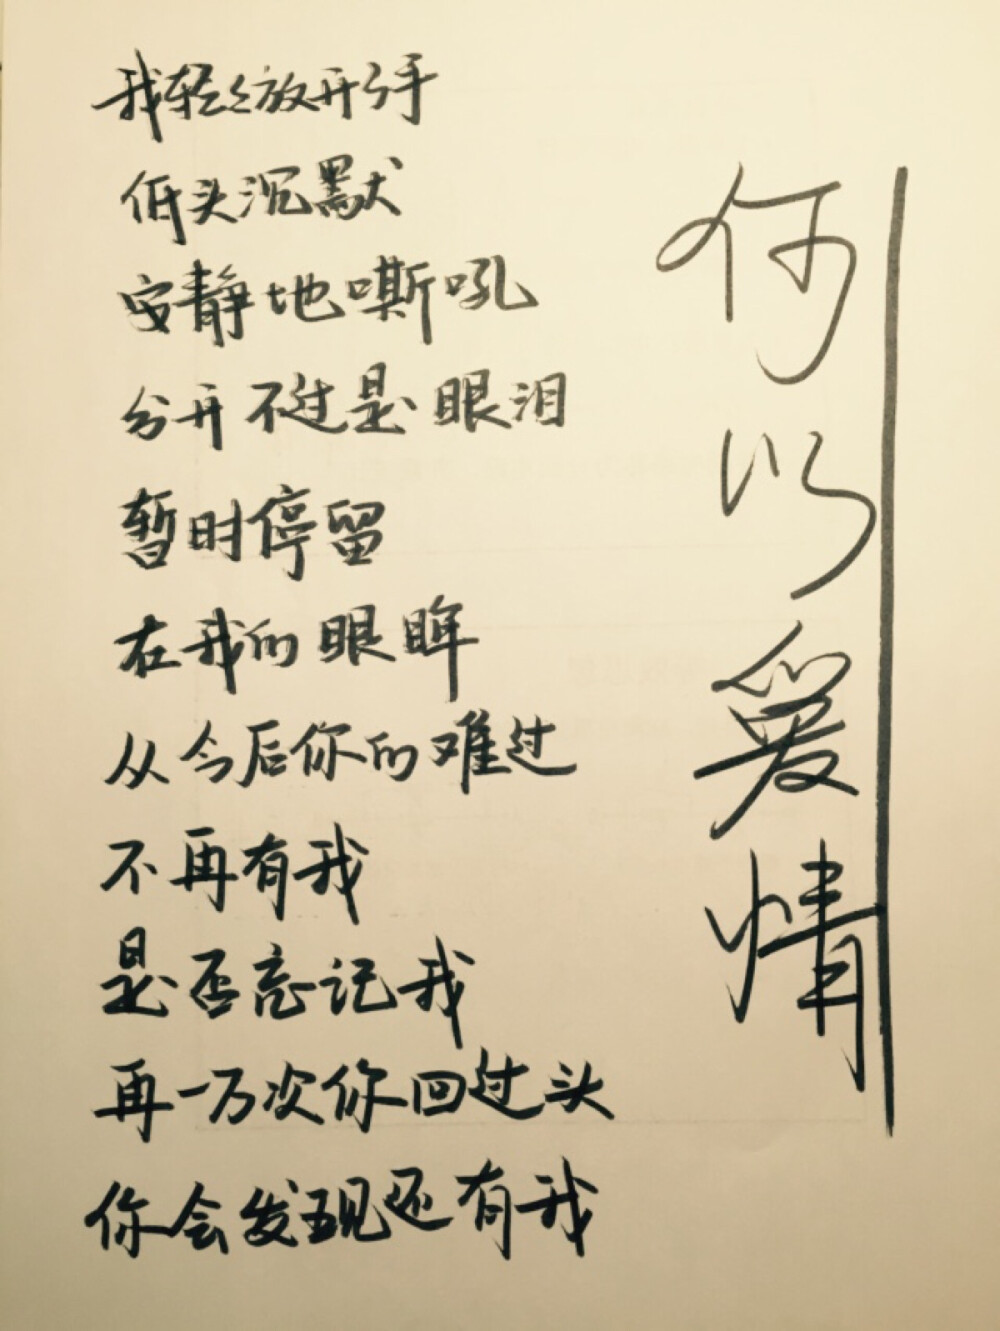 何以爱情
我轻轻放开了手
低头沉默
安静地嘶吼
分开不过是眼泪
暂时停留
在我的眼眸
从今后你的难过
不再有我
是否忘记我
再一万次你回过头
你会发现还有我